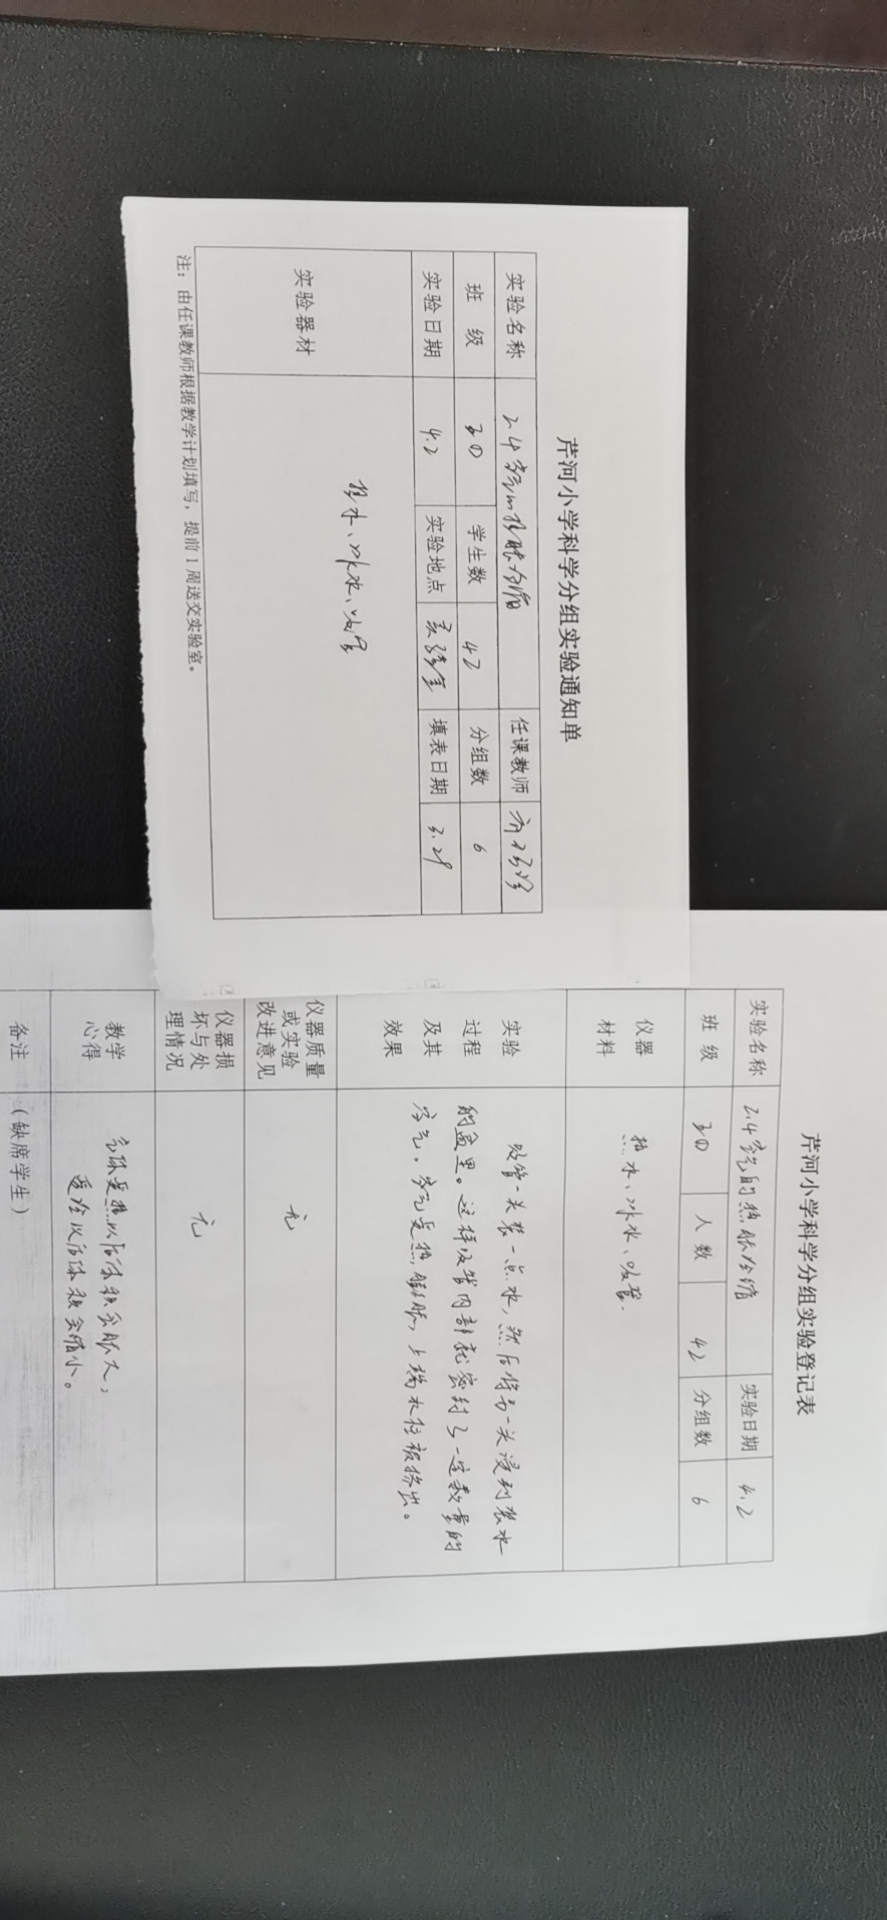 芹河小学科学分组实验通知单
实验名称 2.4空气的热胀冷缩 任课教师
班 级 五① 学生数 42 分组数 6
实验日期 4.2 实验地点 实验室 填表日期 3.29
实验器材 热水、冰水、吸管
注：由任课教师根据教学计划填写，提前1周送交实验室。
芹河小学科学分组实验登记表
实验名称 2.4空气的热胀冷缩 实验日期 4.2
班 级 五① 人数 42 分组数 6
仪器
材料
热水、冰水、吸管.
实验
过程
及其
效果
吸管一头装一点水，然后将另一头浸到装水
的盆里。这样吸管内部就密封了一定数量的
空气。空气受热膨胀，上端水位被挤出。
仪器质量
或实验
改进意见
无
仪器损
坏与处
理情况
无
教学
心得
气体受热以后体积会胀大；
受冷以后体积会缩小。
备注 （缺席学生）